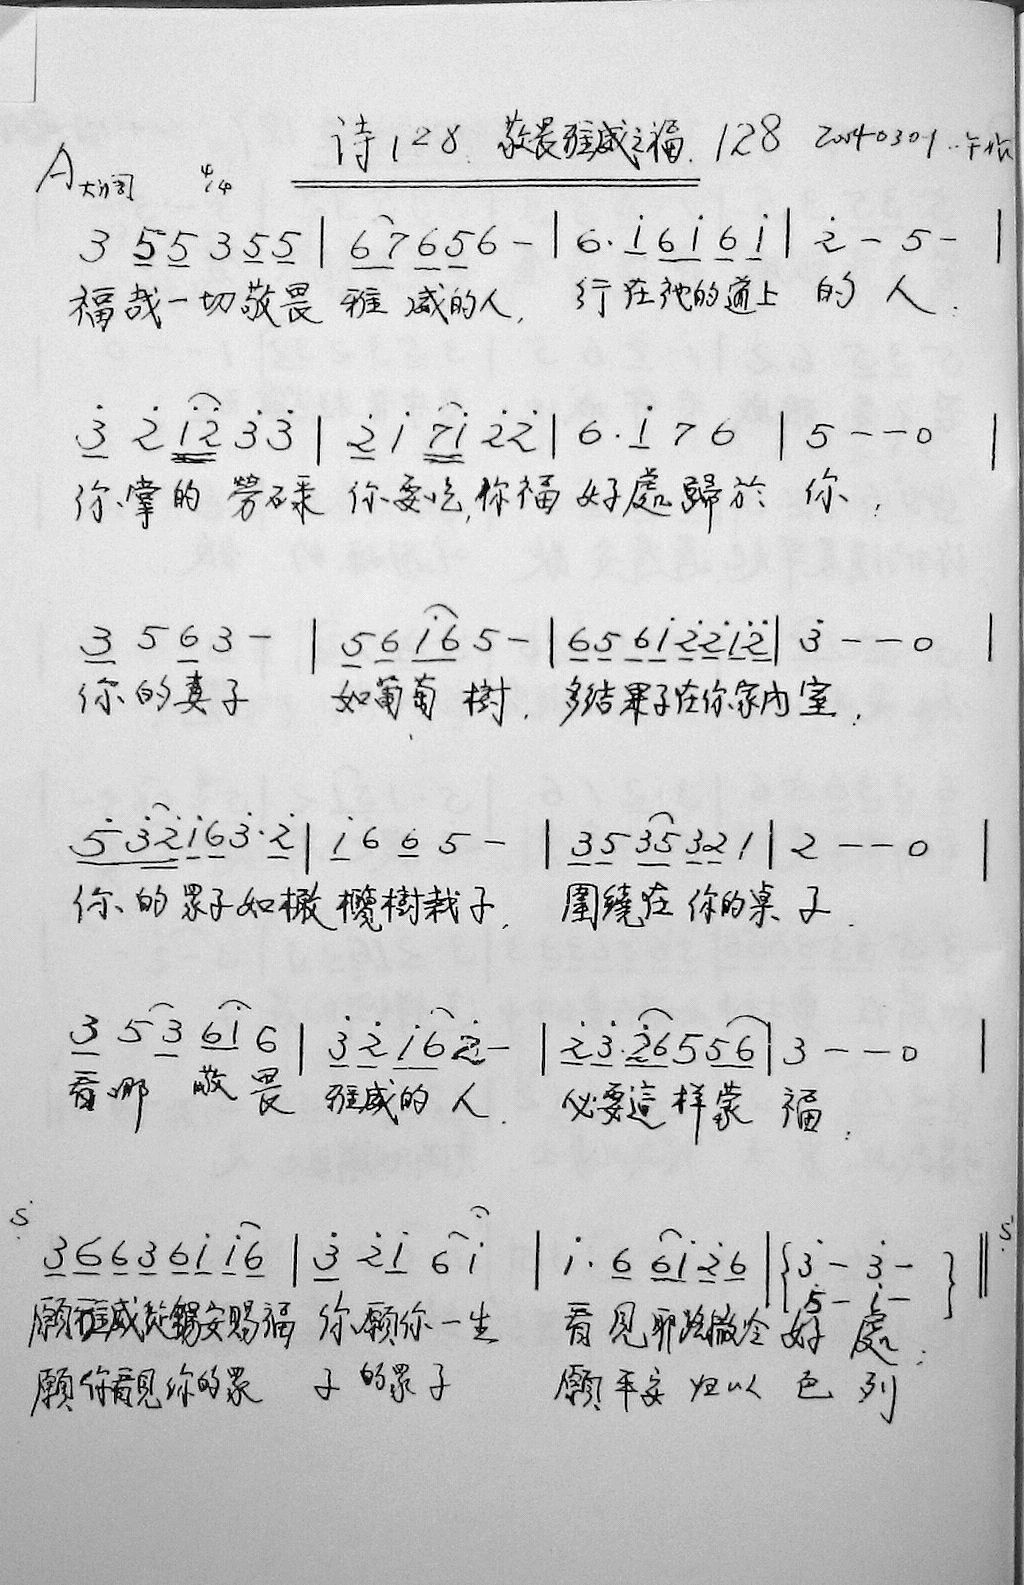 诗128 敬畏雅威之福 128 20140301
A大调 4/4
3 5 5 3 5 5 | 6 7 6 5 6 - | 6 · i̇ 6 i̇ 6 i̇ | 2̇ - 5 - |
福哉一切敬畏 雅 威的人, 行在祂的道上 的 人.
3̇ 2̇ i̇ 2̇ 3̇ 3̇ | 2̇ i̇ 7 i̇ 2̇ 2̇ | 6 · i̇ 7 6 | 5 - - 0 |
你掌的 勞碌 你要吃,你福 好處歸於 你;
3 5 6 3 - | 5 6 i̇ 6 5 - | 6 5 6 i̇ 2̇ 2̇ i̇ 2̇ | 3̇ - - 0 |
你的妻子 如葡萄 樹, 多結果子在你家內室;
5̇ 3̇ 2̇ i̇ 6 3̇ · 2̇ | i̇ 6 6 5 - | 3 5 3 5 3 2 1 | 2 - - 0 |
你的眾子如橄欖樹栽子, 圍繞在你的桌子.
3 5 3 6 i̇ 6 | 3̇ 2̇ i̇ 6 2̇ - | 2̇ 3̇ · 2̇ 6 5 5 6 | 3 - - 0 |
看哪 敬畏 雅威的人, 必要這样蒙 福:
3 6 6 3 6 i̇ i̇ 6 | 3̇ 2̇ i̇ 6 i̇ | i̇ · 6 6 i̇ 2̇ 6 | { 3̇ - 3̇ - } ‖
5 - i̇ -
願雅威從錫安賜福 你願你一生 看見耶路撒冷 好處;
願你看見你的眾 子的眾子 願平安归以色列